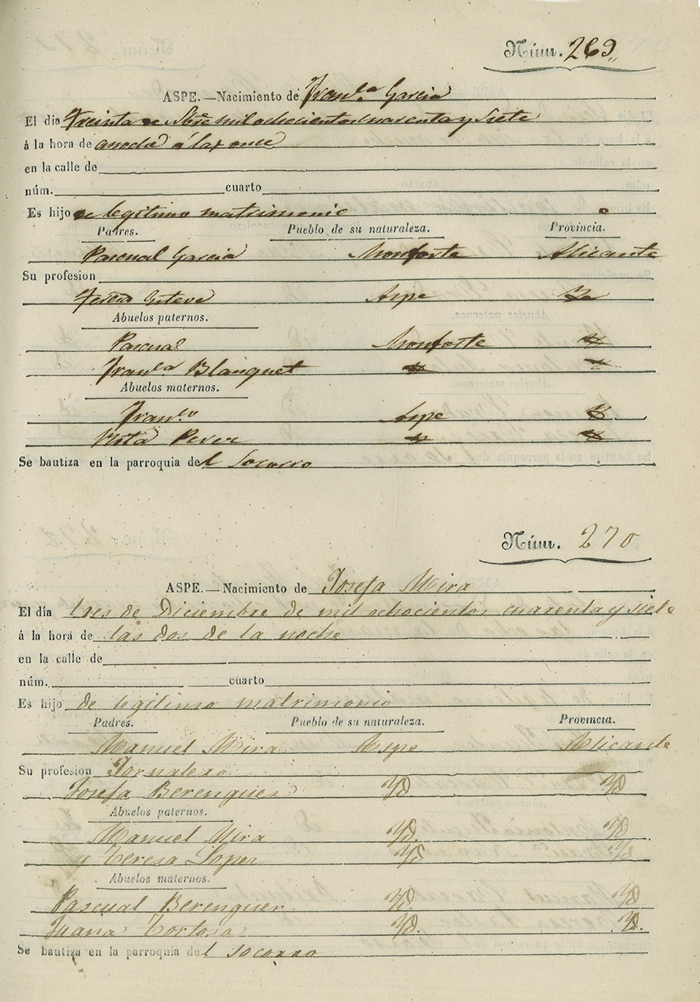 Núm. 269
ASPE.—Nacimiento de Fran.ca Garcia
El dia Treinta de Nbre mil ochocientos cuarenta y Siete
á la hora de anoche á las once
en la calle de
núm. cuarto
Es hijo de legitimo matrimonio
Padres. Pueblo de su naturaleza. Provincia.
Pascual Garcia Monforte Alicante
Su profesion
Esteve Aspe Yd
Abuelos paternos.
Pascual Monforte Yd
Fran.ca Blanquet Yd Yd
Abuelos maternos.
Fran.co Aspe Yd
Rita Perez Yd Yd
Se bautiza en la parroquia del Socorro
Núm. 270
ASPE.—Nacimiento de Josefa Mira
El dia tres de Diciembre de mil ochocientos cuarenta y siete
á la hora de las dos de la noche
en la calle de
núm. cuarto
Es hijo de legitimo matrimonio
Padres. Pueblo de su naturaleza. Provincia.
Manuel Mira Aspe Alicante
Su profesion Jornalero
Josefa Berenguer Yd. Yd.
Abuelos paternos.
Manuel Mira Yd. Yd.
y Teresa Lopez Yd. Yd.
Abuelos maternos.
Pascual Berenguer Yd. Yd.
Juana Tortosa Yd. Yd.
Se bautiza en la parroquia del Socorro